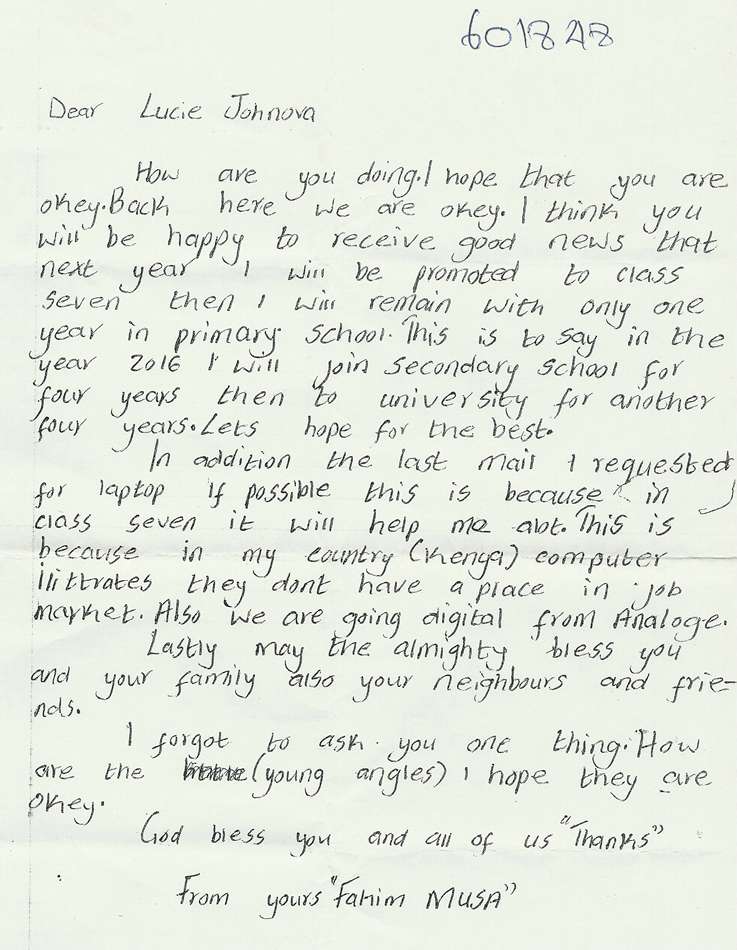 601848
Dear Lucie Johnova
How are you doing. I hope that you are
okey. Back here we are okey. I think you
will be happy to receive good news that
next year I will be promoted to class
seven then I will remain with only one
year in primary school. This is to say in the
year 2016 I will join secondary school for
four years then to university for another
four years. Lets hope for the best.
In addition the last mail I requested
for laptop if possible this is because in
class seven it will help me alot. This is
because in my country (Kenya) computer
ilittrates they dont have a place in job
market. Also we are going digital from Analoge.
Lastly may the almighty bless you
and your family also your neighbours and frie-
nds.
I forgot to ask you one thing. How
are the (young angles) I hope they are
okey.
God bless you and all of us "Thanks"
From yours "Fahim MUSA"